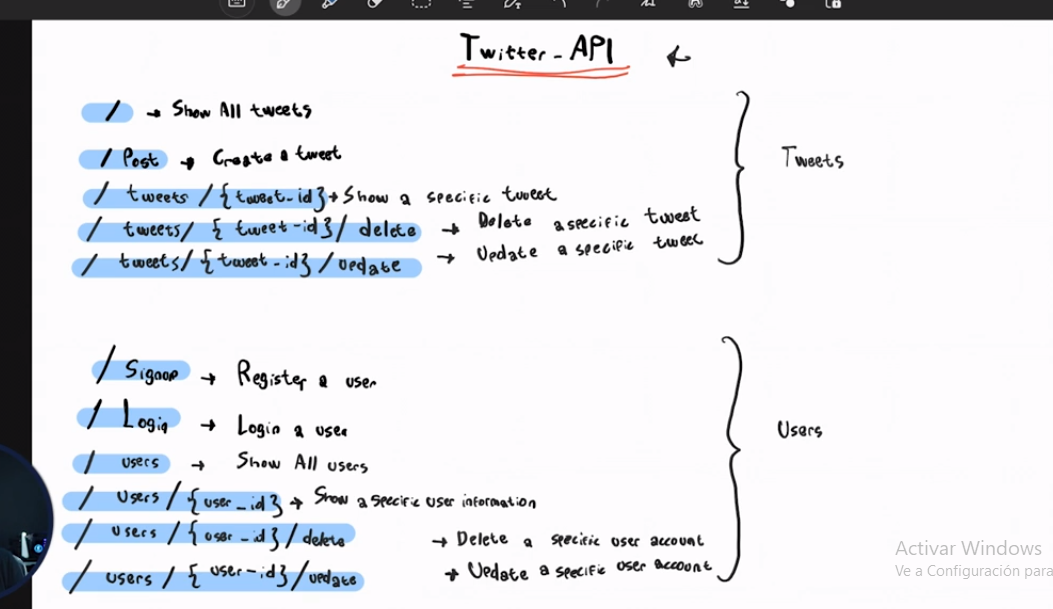 Twitter_API
/ → Show All tweets
/ Post → Create a tweet
/ tweets / {tweet_id} → Show a specific tweet
/ tweets / {tweet_id} / delete → Delete a specific tweet
/ tweets / {tweet_id} / update → Update a specific tweet
Tweets
/ Signup → Register a user
/ Login → Login a user
/ users → Show All users
/ users / {user_id} → Show a specific user information
/ users / {user_id} / delete → Delete a specific user account
/ users / {user_id} / update → Update a specific user account
Users
Activar Windows
Ve a Configuración para